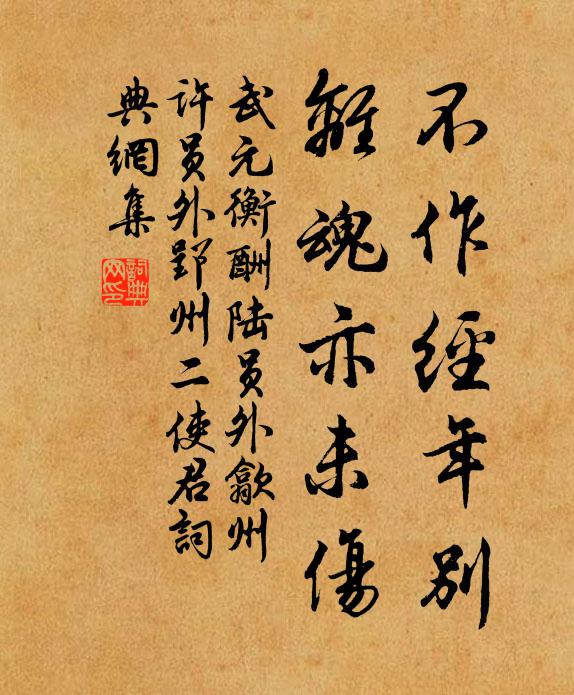 不作經年別
離魂亦未傷
武元衡酬陆員外歙州
許員外郢州二使君詞
典網集
詞典網印